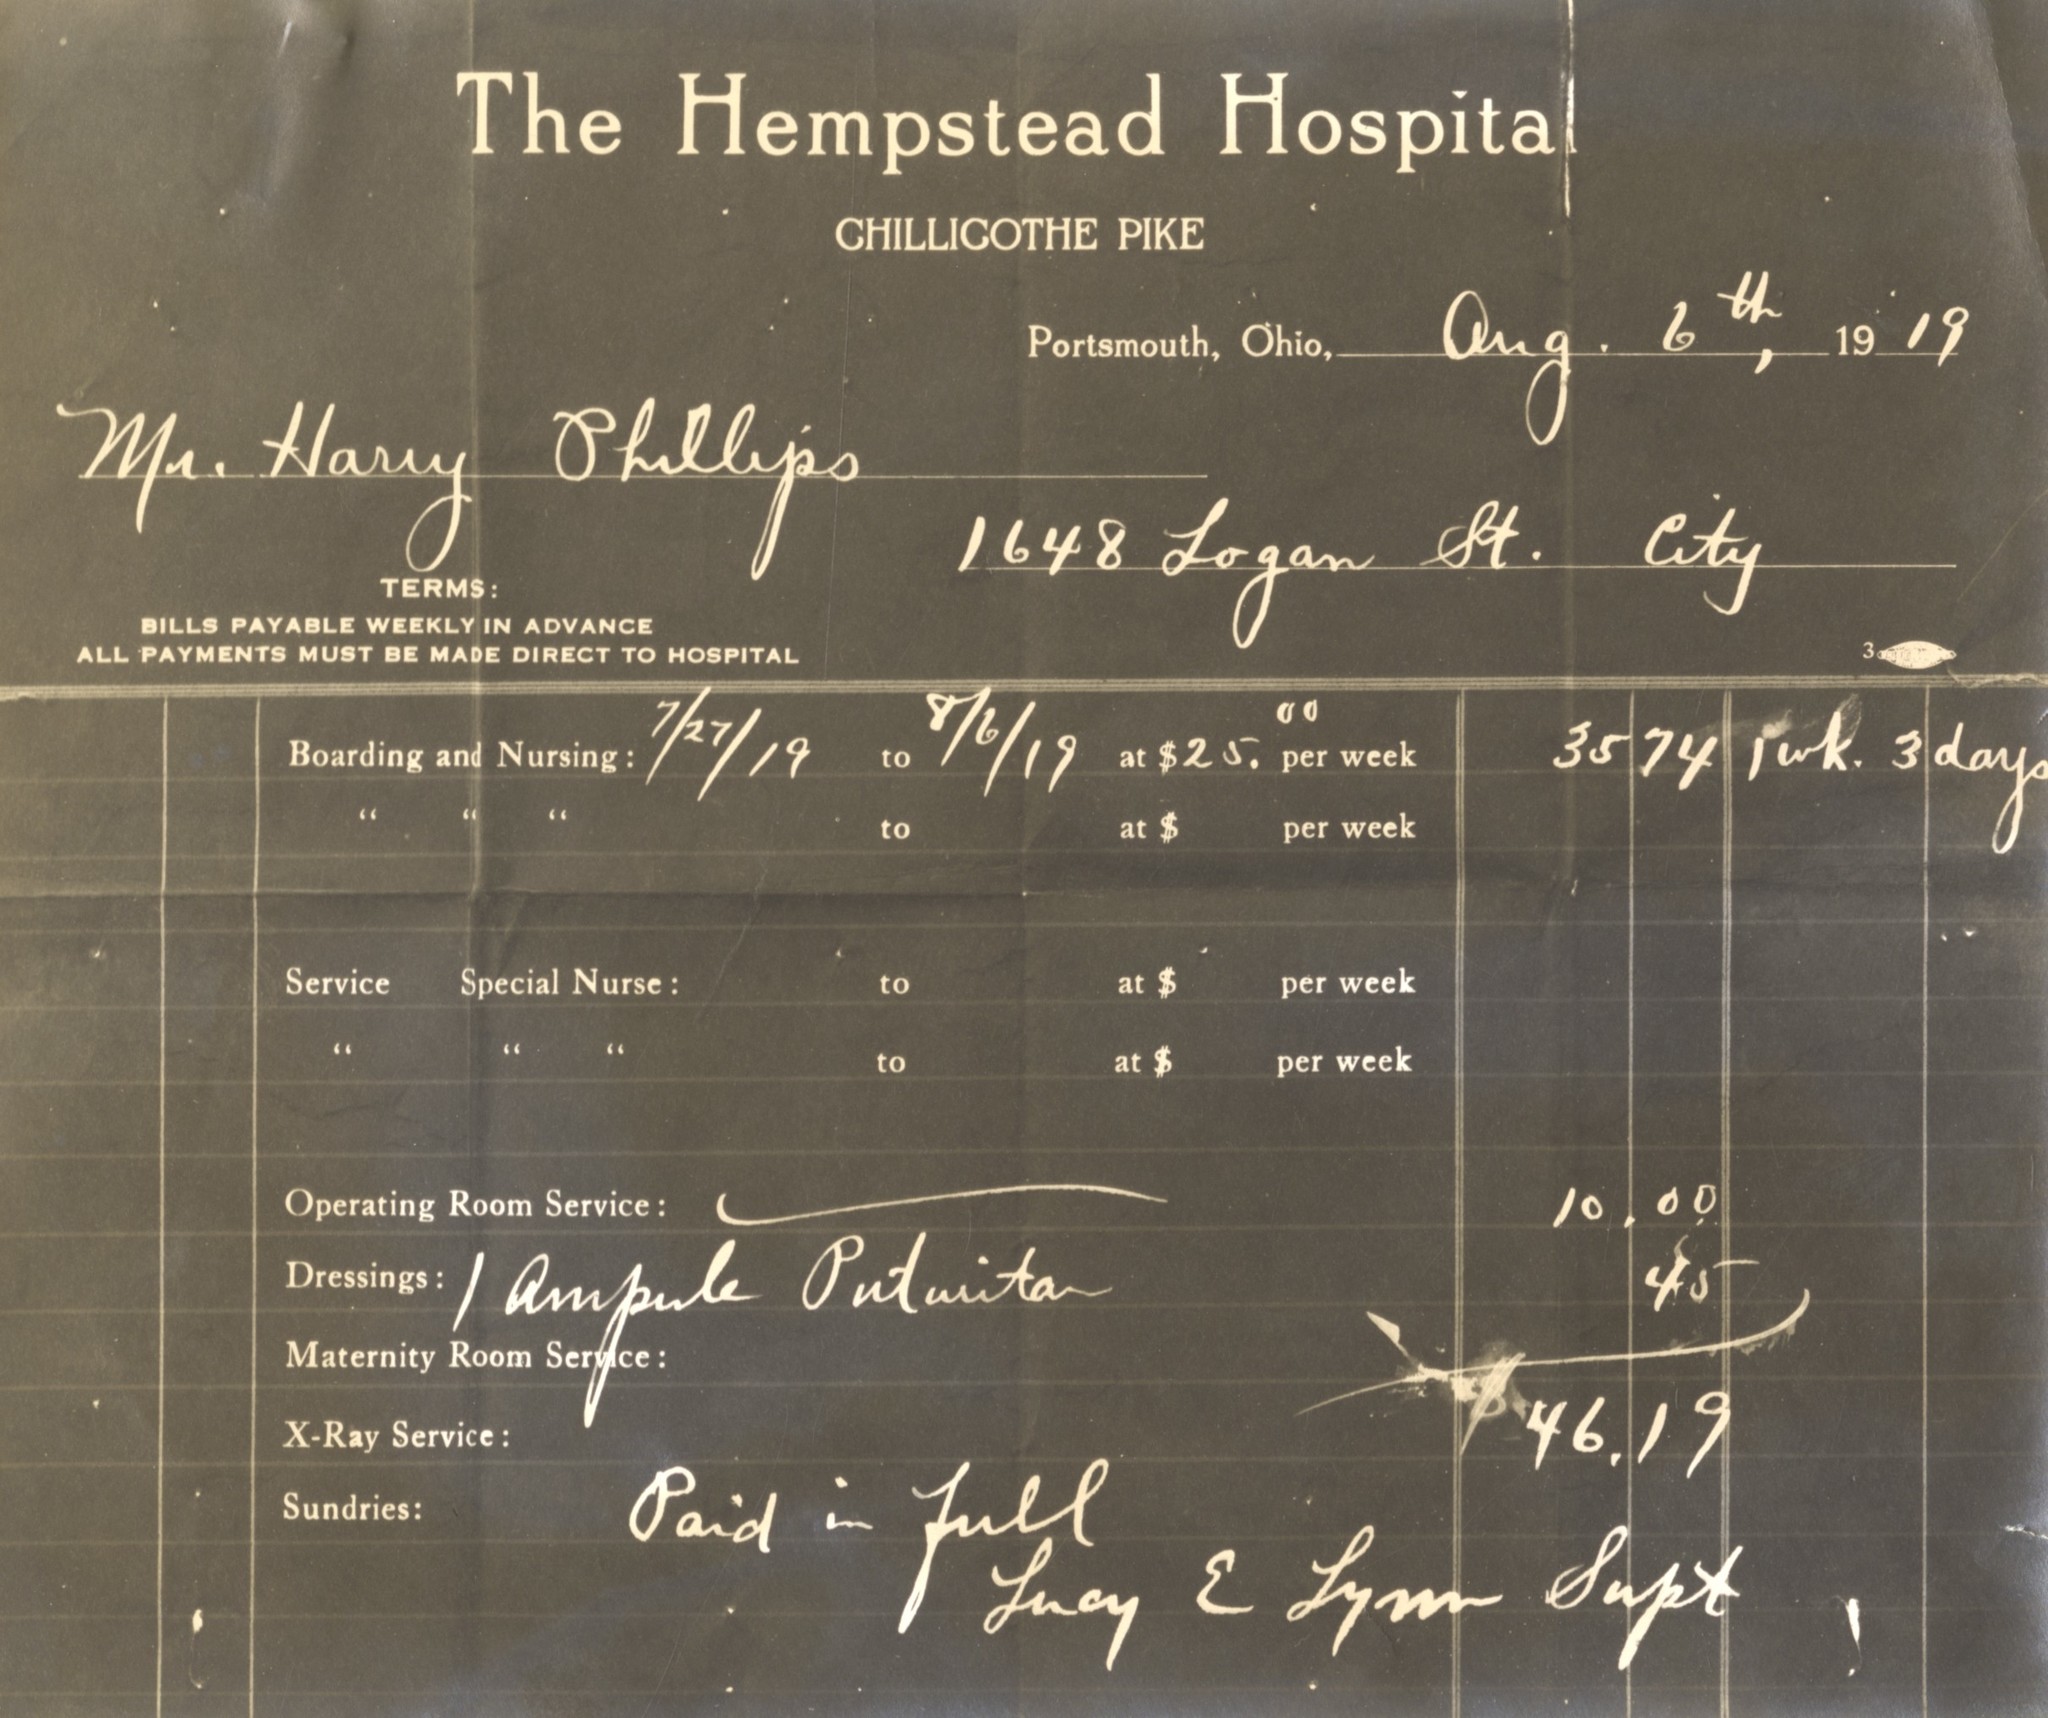 The Hempstead Hospital
CHILLICOTHE PIKE
Portsmouth, Ohio, Aug. 6th, 1919
Mr. Harry Phillips
1648 Logan St. City
TERMS:
BILLS PAYABLE WEEKLY IN ADVANCE
ALL PAYMENTS MUST BE MADE DIRECT TO HOSPITAL
3
Boarding and Nursing: 7/27/19 to 8/6/19 at $25.00 per week 35 74 1 wk. 3 days
" " " to at $ per week
Service Special Nurse: to at $ per week
" " " to at $ per week
Operating Room Service: 10.00
Dressings: 1 Ampule Pituitan 45
Maternity Room Service:
$46.19
X-Ray Service:
Sundries: Paid in full
Lucy E Lynn Supt